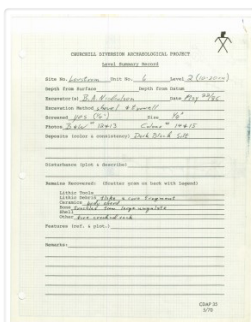 CHURCHILL DIVERSION ARCHAEOLOGICAL PROJECT
Level Summary Record
Site No. Unit No. 6 Level 2 (10-20cm)
Depth from Surface Depth from Datum
Excavator(s) B.A. Nicholson Date May
Excavation Method shovel & trowel
Screened yes (¼") Size ¼"
Photos B&W# Colour#
Deposits (color & consistency) Dark Black Silt
Disturbance (plot & describe)
Remains Recovered: (Scatter plots on back with legend)
Lithic Tools
Lithic Debris flake & core fragment
Ceramics body sherd
Bone long ungulate
Shell
Other fire cracked rock
Features (ref. & plot.)
Remarks:
CDAP 25
5/75